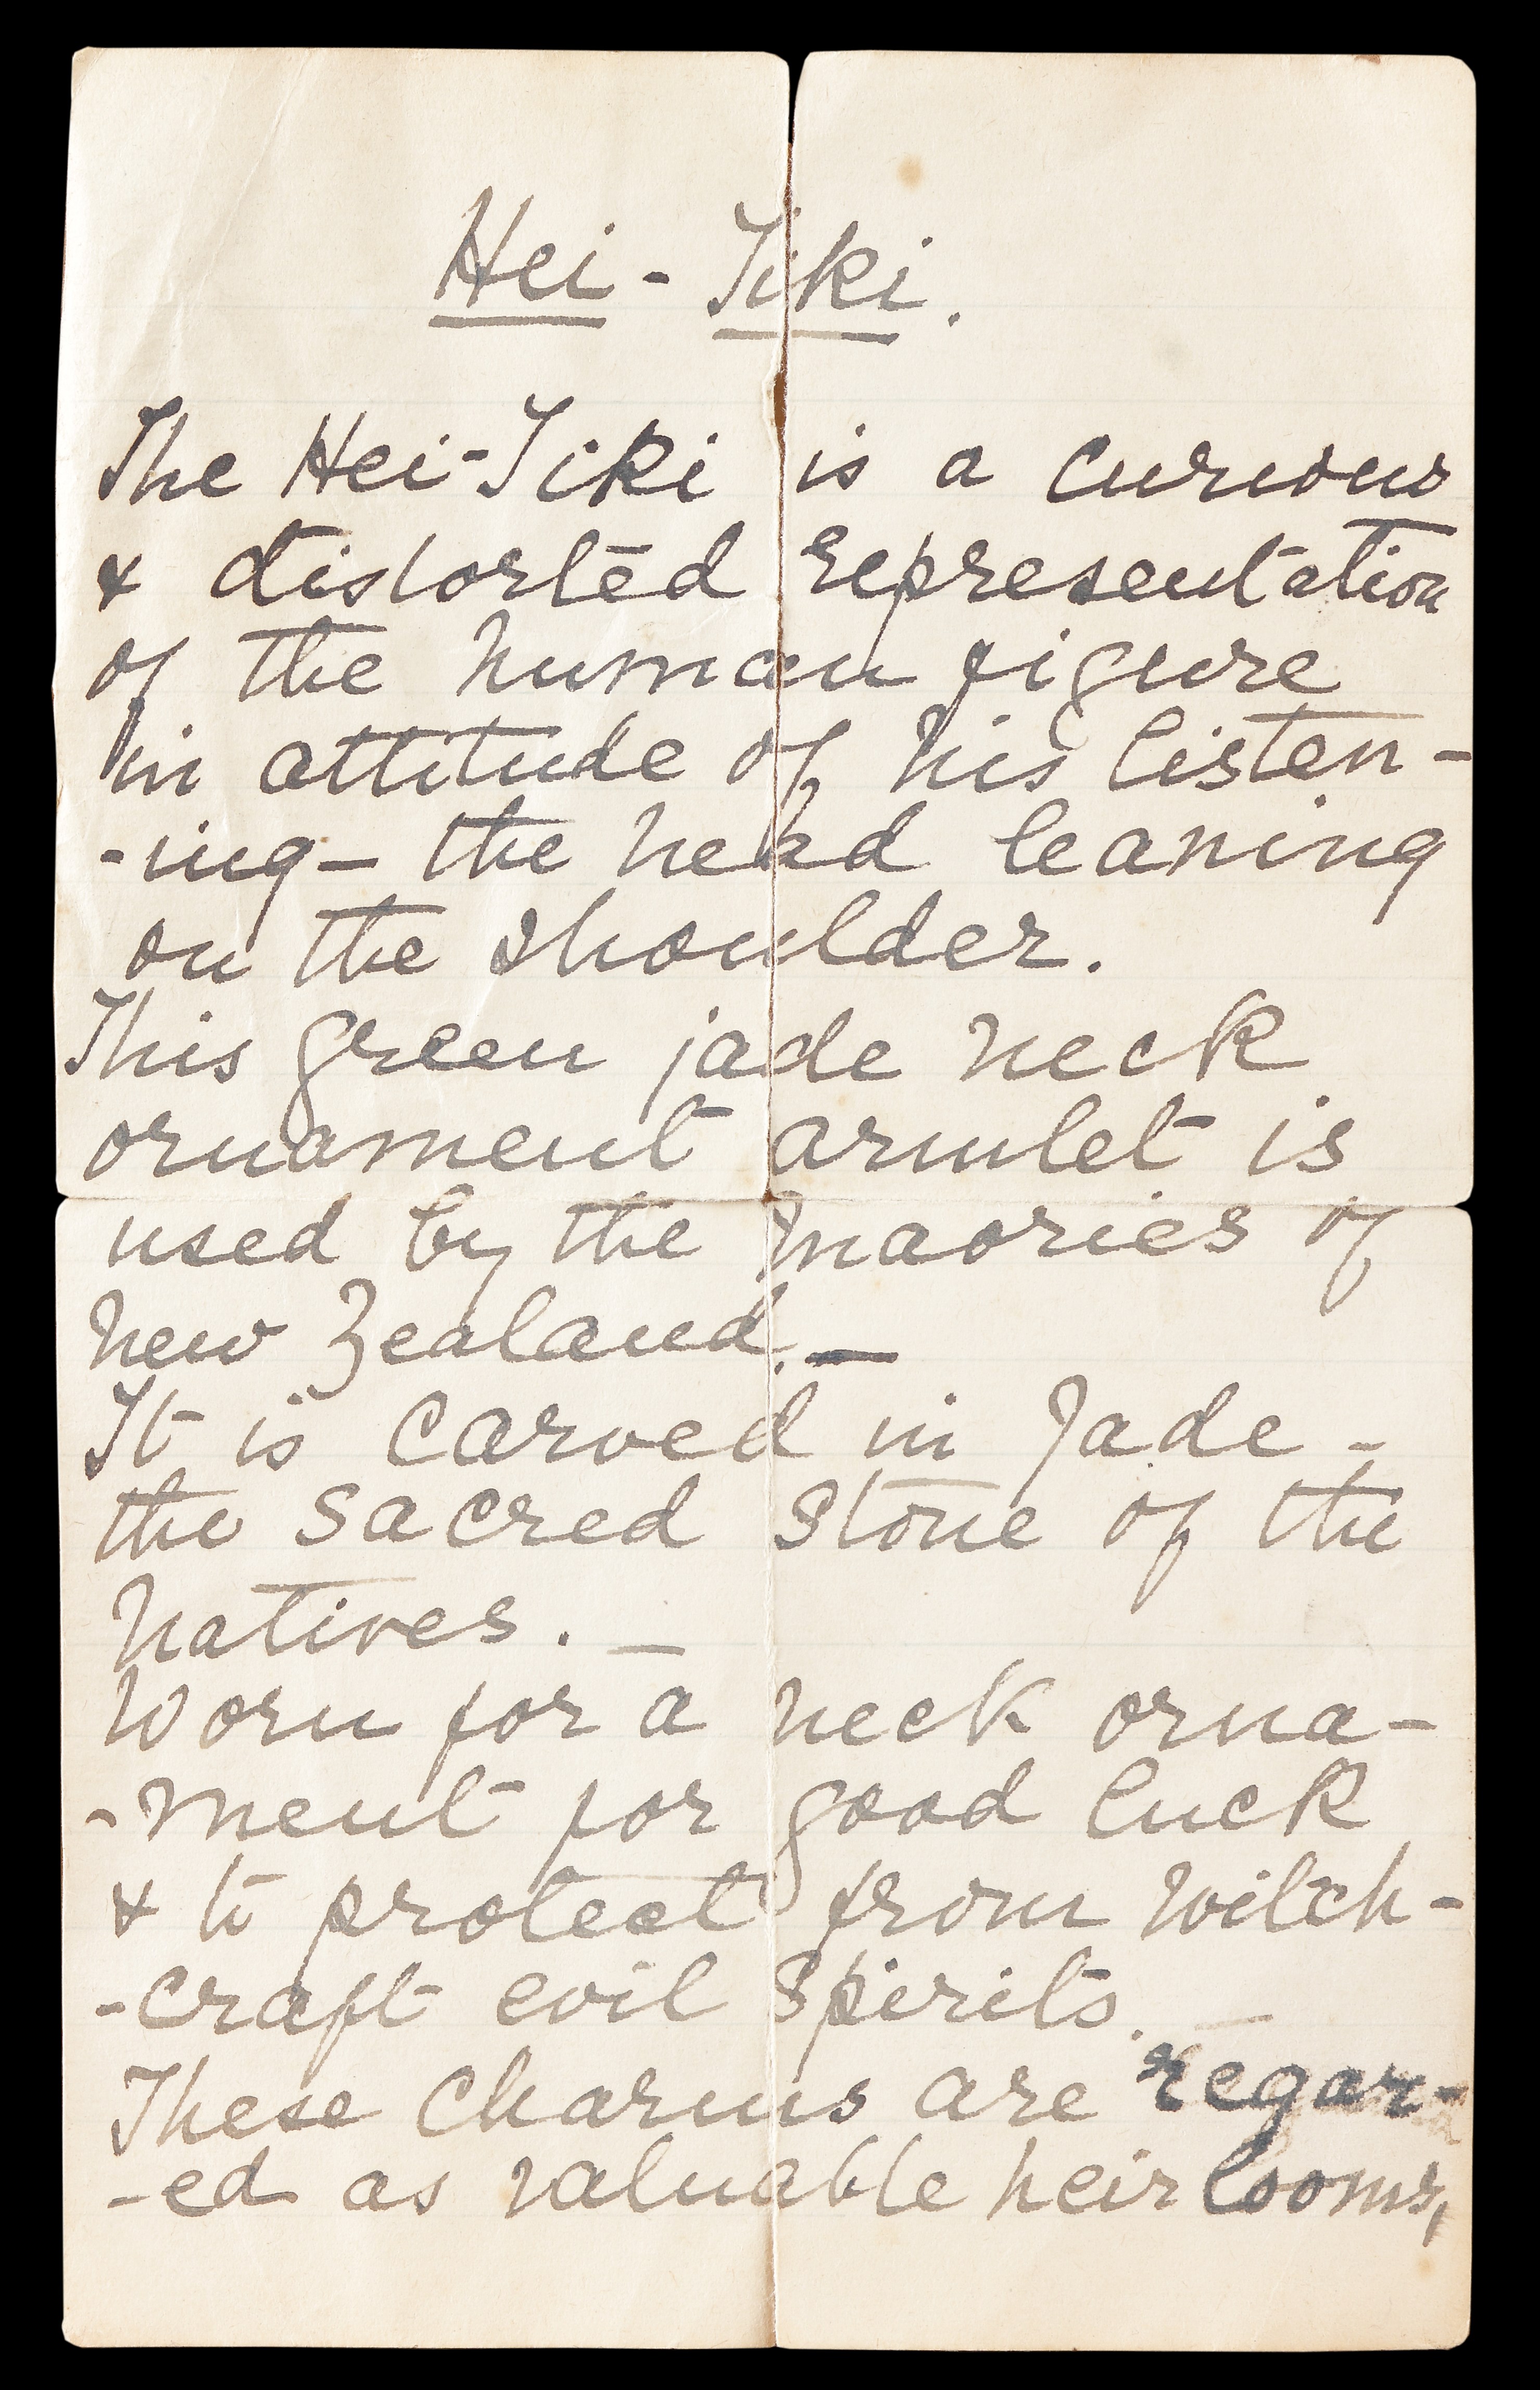 Hei-Tiki.
The Hei-Tiki is a curious
& distorted representation
of the human figure
in attitude of his listen-
-ing- the head leaning
on the shoulder.
This green jade neck
ornament armlet is
used by the maories of
New Zealand. —
It is carved in Jade -
the sacred stone of the
natives. —
Worn for a neck orna-
-ment for good luck
& to protect from witch-
-craft evil spirits. —
These charms are regar-
-ed as valuable heir looms,